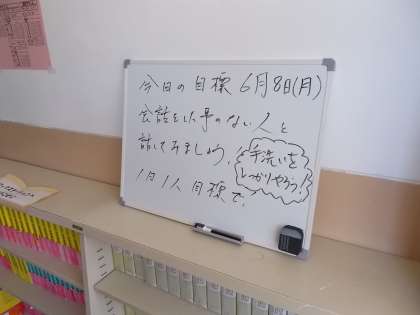 今日の目標 6月8日(月)
会話をした事のない人と
話してみましょう。
1日1人目標で。
手洗いを
しっかりやろう!